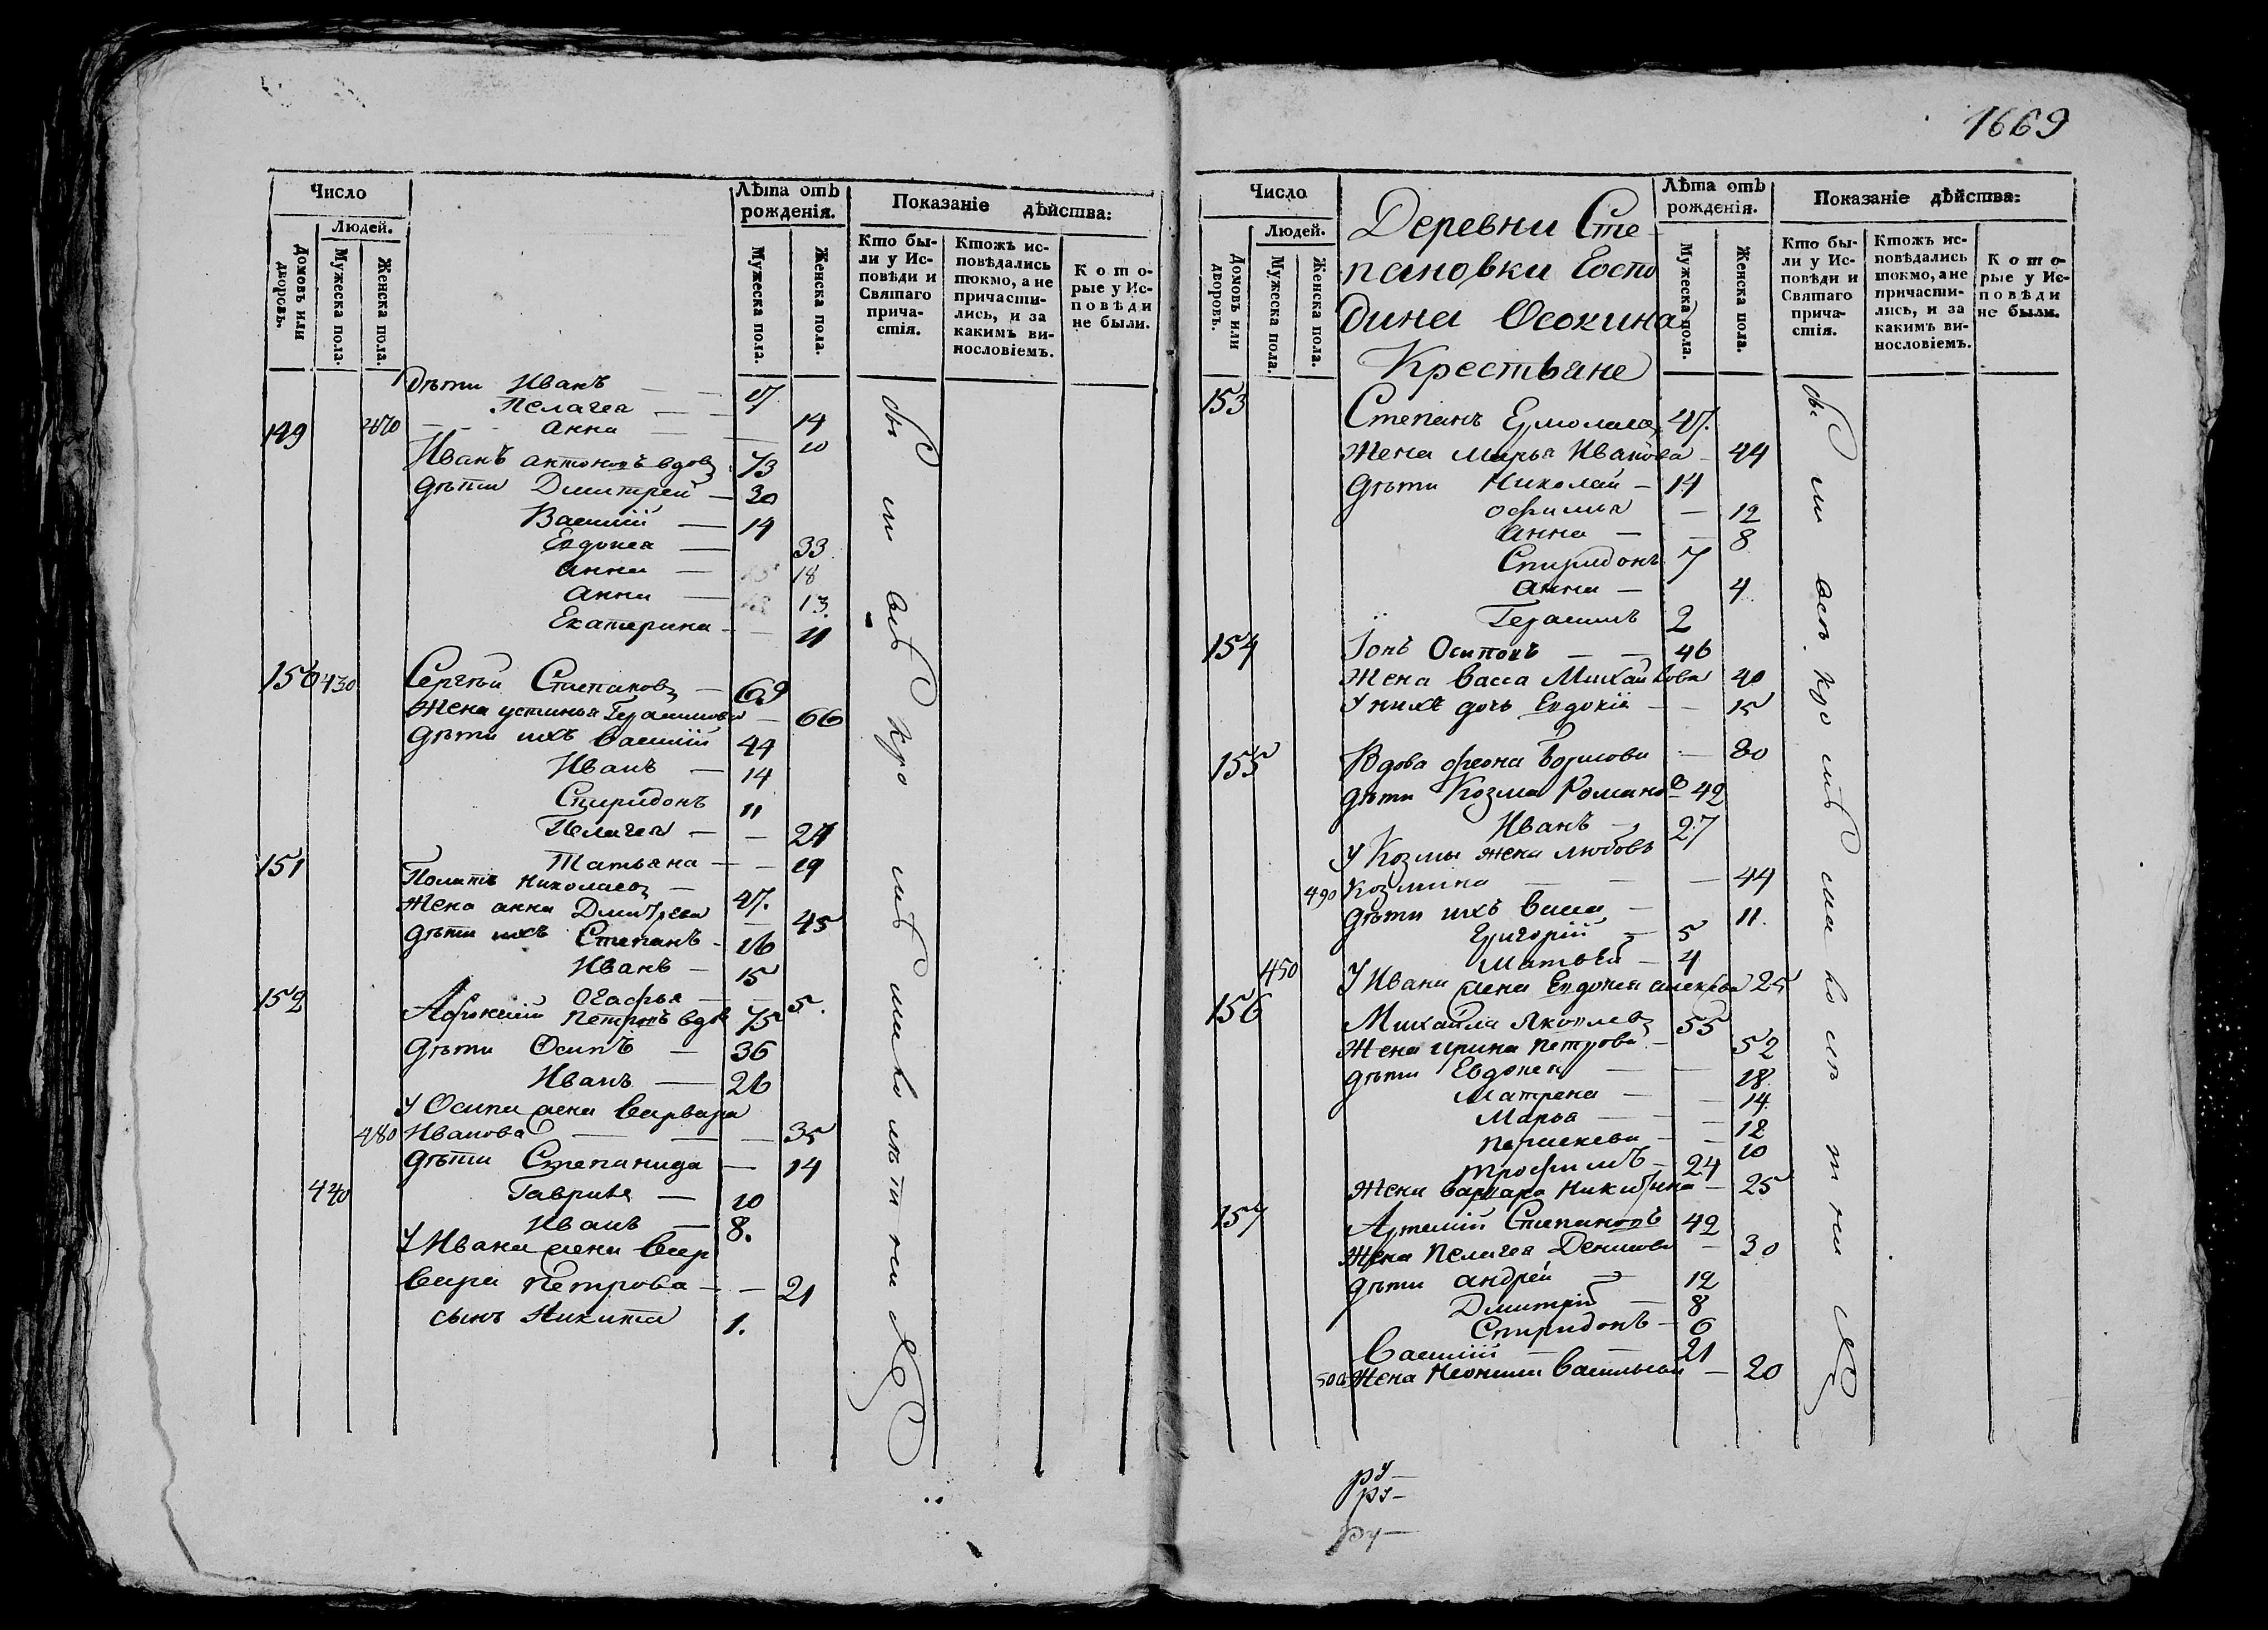 Число
Людей.
Домовъ или дворовъ.
Мужеска пола.
Женска пола.
Лѣта отъ рожденія.
Мужеска пола.
Женска пола.
Показаніе дѣйства:
Кто бы-
ли у Ис-
повѣди и
Святаго
прича-
стія.
Ктожъ ис-
повѣдались
токмо, а не
причасти-
лись, и за
какимъ ви-
нословіемъ.
Кото-
рые у Ис-
повѣди
не были.
дѣти Иванъ — 17
Пелагея — 14
149 Анна — 10
Иванъ Антоновъ вдов 73
дѣти Дмитрей — 30
Василій — 14
Евдокея — 33
Анна — 18
Анна — 13
Екатерина — 11
150 430 Сергѣй Степановъ — 69
Жена Устинья Герасимова — 66
дѣти ихъ Василій 44
Иванъ — 14
Спиридонъ 11
Пелагея — —
151 Татьяна — — 19
Николаевъ — 47.
Жена Анна Дмитрева — 45
дѣти ихъ Степанъ — 16
Иванъ — 15
152 Огафья — — 5.
Петровъ вдов 75
дѣти Осипъ — 36
Иванъ — 26
У Осипа жена Варвара
480 Иванова — — — 35
дѣти Степанида — 14
440 Гаврила — 10
Иванъ — 8.
У Ивана жена Вар
вара Петрова — — 21
сынъ Никита 1.
были всѣ кромѣ малолѣтних
1669
Число
Людей.
Домовъ или дворовъ.
Мужеска пола.
Женска пола.
Деревни Сте
пановки Госпо
дина Осокина
Крестьяне
Лѣта отъ рожденія.
Мужеска пола.
Женска пола.
Показаніе дѣйства:
Кто бы-
ли у Ис-
повѣди и
Святаго
прича-
стія.
Ктожъ ис-
повѣдались
токмо, а не
причасти-
лись, и за
какимъ ви-
нословіемъ.
Кото-
рые у Ис-
повѣди
не были.
153 Степанъ Ермолаевъ 47.
Жена Марья Иванова — 44
дѣти Николай — 14
Офимья — 12
Анна — — 8
Спиридонъ 7
Анна — 4
Герасимъ 2
154 Іонъ Осиповъ — — 46
Жена Васса Михайлова 40
У нихъ дочь Евдокія — — 15
155 Вдова — 80
дѣти Козма Романовъ 42
Иванъ — 27
У Козмы жена Любовь
490 Козмина — — — 44
дѣти ихъ Васса — 11.
Григорій — 5
Матвѣй — 4
450 У Ивана жена Евдокея Алексѣва 25
156 Михайла Яковлевъ 55
Жена Ирина Петрова — 52
дѣти Евдокея — — 18.
Матрена — — 14.
Марья — — — 12
Парасковья — — 10
Трофимъ — 24
Жена Варвара Никитина — 25
157 Артемій Степановъ 42
Жена Пелагея Денисова — 30
дѣти Андрей — 12
Дмитрій — 8
Спиридонъ — 6
Василій — — 21
500 Жена Васильева — 20
были всѣ кромѣ малолѣтних
ру—
ру—
ру—